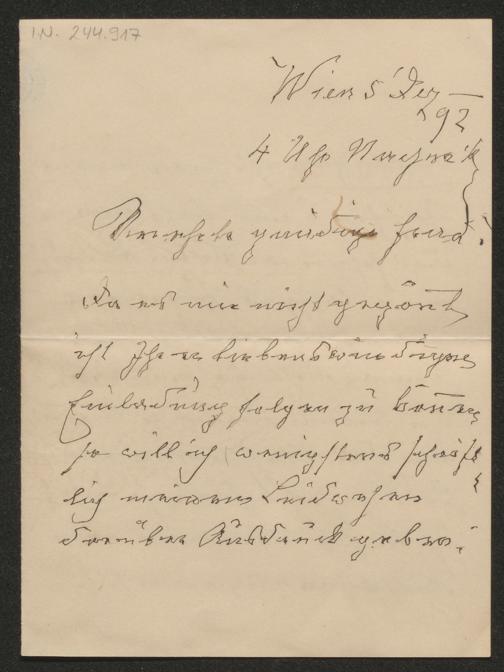 I.N. 244.917
Wien 5 Dez
92
4 Uhr Nachm.
Verehrte gnädige Frau!
Da es mir nicht gegönt
ist Ihrer liebenswürdigen
Einladung folgen zu können
so will ich wenigstens schrift
lich meinem Leidwesen
darüber Ausdruck geben.